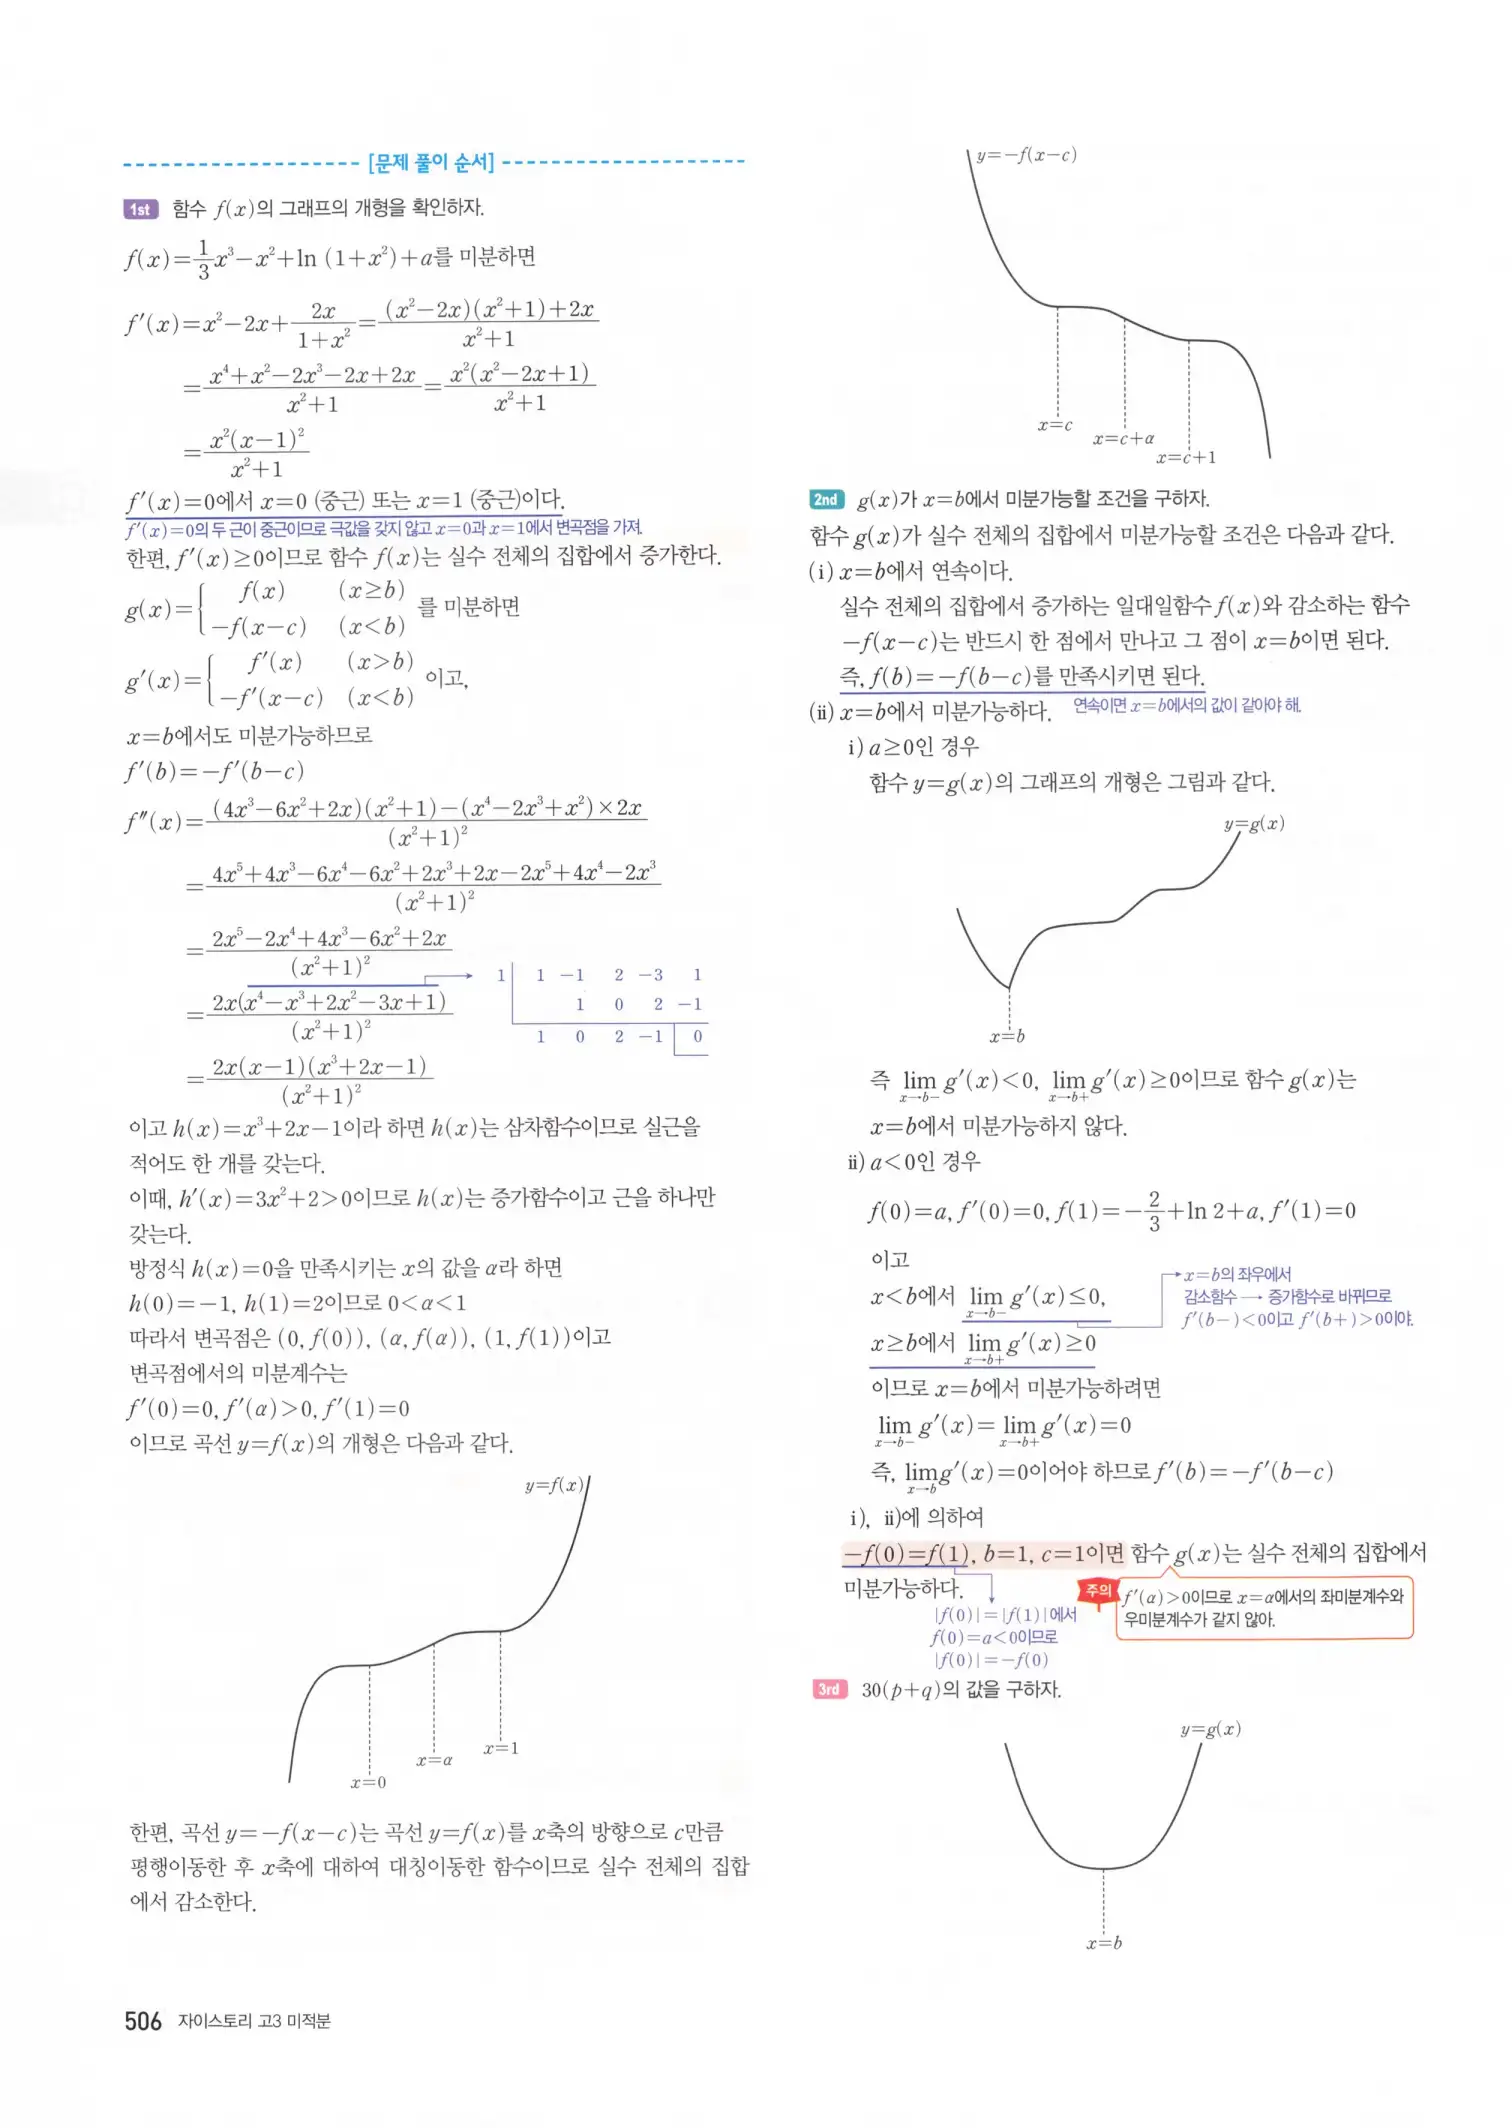 [문제 풀이 순서]
1st 함수 f(x)의 그래프의 개형을 확인하자.
f(x)=1/3x³−x²+ln (1+x²)+a를 미분하면
f′(x)=x²−2x+2x/(1+x²)=((x²−2x)(x²+1)+2x)/(x²+1)
=(x⁴+x²−2x³−2x+2x)/(x²+1)=(x²(x²−2x+1))/(x²+1)
=(x²(x−1)²)/(x²+1)
f′(x)=0에서 x=0 (중근) 또는 x=1 (중근)이다.
f′(x)=0의 두 근이 중근이므로 극값을 갖지 않고 x=0과 x=1에서 변곡점을 가져.
한편, f′(x)≥0이므로 함수 f(x)는 실수 전체의 집합에서 증가한다.
g(x)={ f(x) (x≥b)
−f(x−c) (x<b) 를 미분하면
g′(x)={ f′(x) (x>b)
−f′(x−c) (x<b) 이고,
x=b에서도 미분가능하므로
f′(b)=−f′(b−c)
f″(x)=((4x³−6x²+2x)(x²+1)−(x⁴−2x³+x²)×2x)/(x²+1)²
=(4x⁵+4x³−6x⁴−6x²+2x³+2x−2x⁵+4x⁴−2x³)/(x²+1)²
=(2x⁵−2x⁴+4x³−6x²+2x)/(x²+1)²
=(2x(x⁴−x³+2x²−3x+1))/(x²+1)²
1 | 1 −1 2 −3 1
1 0 2 −1
1 0 2 −1 0
=(2x(x−1)(x³+2x−1))/(x²+1)²
이고 h(x)=x³+2x−1이라 하면 h(x)는 삼차함수이므로 실근을
적어도 한 개를 갖는다.
이때, h′(x)=3x²+2>0이므로 h(x)는 증가함수이고 근을 하나만
갖는다.
방정식 h(x)=0을 만족시키는 x의 값을 α라 하면
h(0)=−1, h(1)=2이므로 0<α<1
따라서 변곡점은 (0, f(0)), (α, f(α)), (1, f(1))이고
변곡점에서의 미분계수는
f′(0)=0, f′(α)>0, f′(1)=0
이므로 곡선 y=f(x)의 개형은 다음과 같다.
y=f(x)
x=1
x=α
x=0
한편, 곡선 y=−f(x−c)는 곡선 y=f(x)를 x축의 방향으로 c만큼
평행이동한 후 x축에 대하여 대칭이동한 함수이므로 실수 전체의 집합
에서 감소한다.
506 자이스토리 고3 미적분
y=−f(x−c)
x=c
x=c+α
x=c+1
2nd g(x)가 x=b에서 미분가능할 조건을 구하자.
함수 g(x)가 실수 전체의 집합에서 미분가능할 조건은 다음과 같다.
(ⅰ) x=b에서 연속이다.
실수 전체의 집합에서 증가하는 일대일함수 f(x)와 감소하는 함수
−f(x−c)는 반드시 한 점에서 만나고 그 점이 x=b이면 된다.
즉, f(b)=−f(b−c)를 만족시키면 된다.
연속이면 x=b에서의 값이 같아야 해.
(ⅱ) x=b에서 미분가능하다.
ⅰ) a≥0인 경우
함수 y=g(x)의 그래프의 개형은 그림과 같다.
y=g(x)
x=b
즉 lim x→b− g′(x)<0, lim x→b+ g′(x)≥0이므로 함수 g(x)는
x=b에서 미분가능하지 않다.
ⅱ) a<0인 경우
f(0)=a, f′(0)=0, f(1)=−2/3+ln 2+a, f′(1)=0
이고
x<b에서 lim x→b− g′(x)≤0,
x≥b에서 lim x→b+ g′(x)≥0
x=b의 좌우에서
감소함수 → 증가함수로 바뀌므로
f′(b−)<0이고 f′(b+)>0이야.
이므로 x=b에서 미분가능하려면
lim x→b− g′(x)= lim x→b+ g′(x)=0
즉, lim x→b g′(x)=0이어야 하므로 f′(b)=−f′(b−c)
ⅰ), ⅱ)에 의하여
−f(0)=f(1), b=1, c=1이면 함수 g(x)는 실수 전체의 집합에서
미분가능하다.
|f(0)|=|f(1)|에서
f(0)=a<0이므로
|f(0)|=−f(0)
주의 f′(α)>0이므로 x=α에서의 좌미분계수와
우미분계수가 같지 않아.
3rd 30(p+q)의 값을 구하자.
y=g(x)
x=b